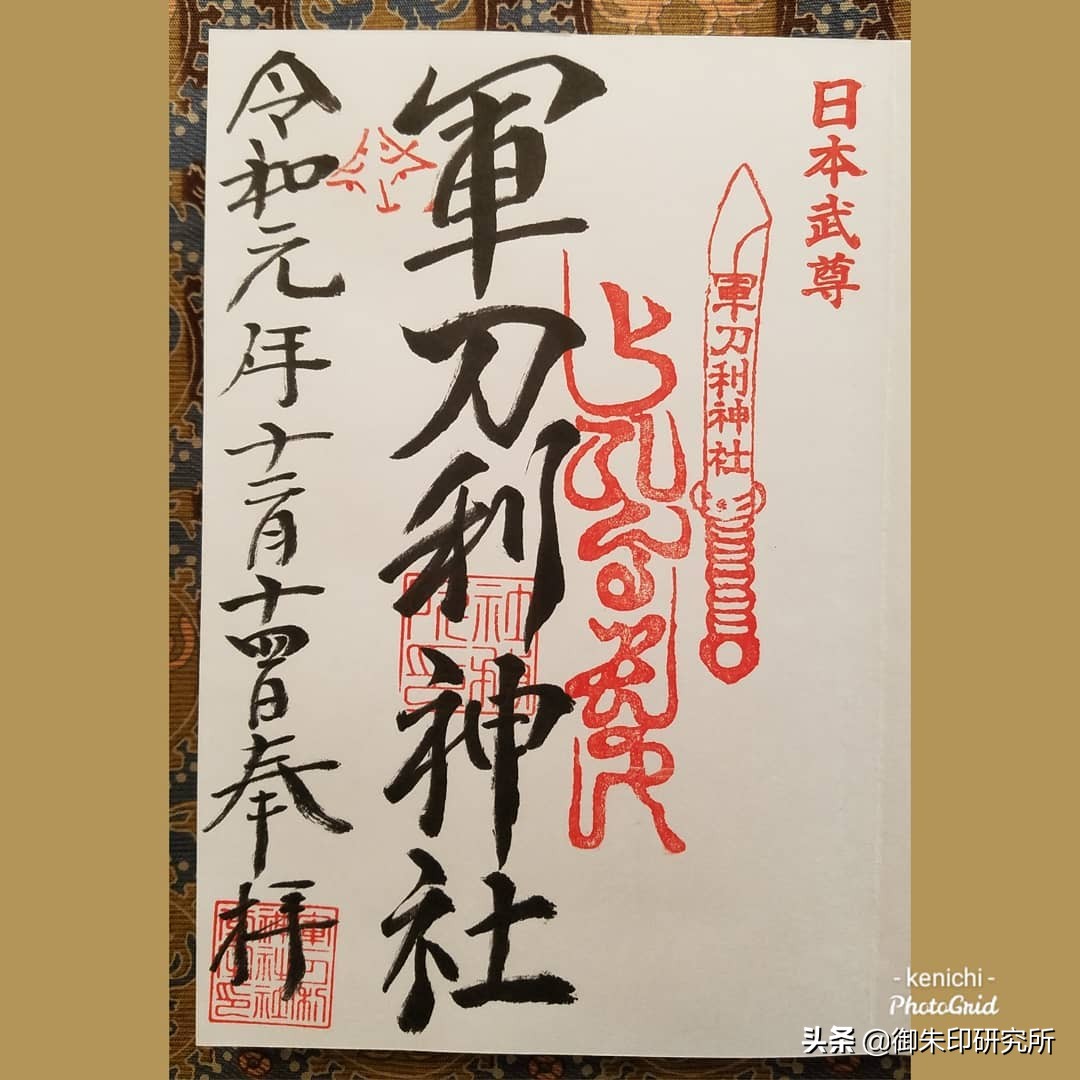 日本武尊
軍刀利神社
軍刀利神社
令和元年十二月十四日奉拝
- kenichi -
PhotoGrid
头条 @御朱印研究所